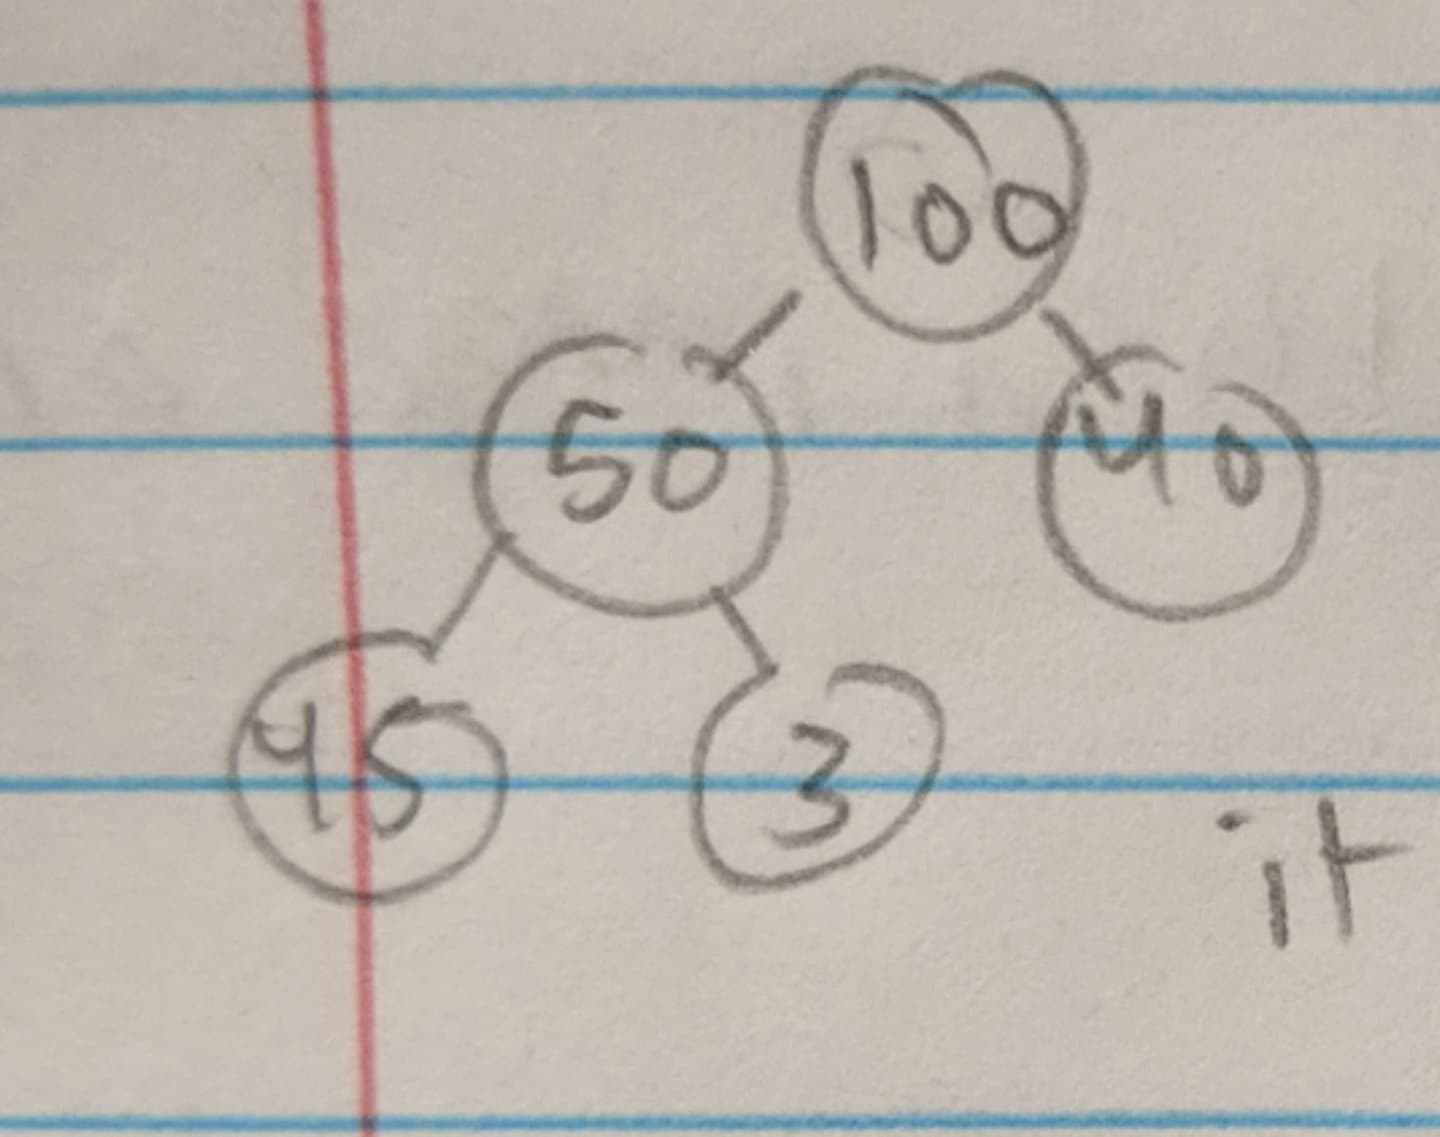 100
50 40
45 3
it